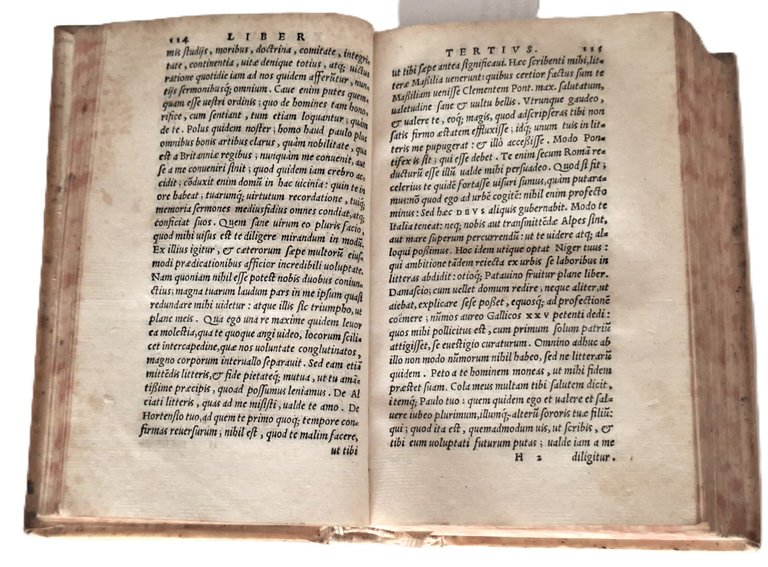 114 LIBER
mis studijs, moribus, doctrina, comitate, integri
tate, continentia, uitæ denique totius, atq; uictus
ratione quotidie iam ad nos quidem afferūtur, nun
tijs sermonibusq; omnium. Caue enim putes quem
quam esse uestri ordinis; quo de homines tam hono
rifice, cum sentiant, tum etiam loquantur; quàm
de te. Polus quidem noster; homo haud paulo plus
omnibus bonis artibus clarus, quàm nobilitate, quæ
est à Britanniæ regibus; nunquàm me conuenit, aut
se a me conueniri sinit; quod quidem iam crebro ac
cidit; cōduxit enim domū in hac uicinia; quin te in
ore habeat; tuarumq; uirtutum recordatione, tuiq;
memoria sermones mediusfidius omnes condiat, atq;
conficiat suos. Quem sane uirum eo pluris facio,
quod mihi uisus est te diligere mirandum in modū.
Ex illius igitur, & cæterorum sæpe multorū eiusc
modi prædicationibus afficior incredibili uoluptate.
Nam quoniam nihil esse potest nobis duobus coniun
ctius; magna tuarum laudum pars in me ipsum quasi
redundare mihi uidetur: atque illis sic triumpho, ut
plane meis. Qua ego unà re maxime quidem leuor
ea molestia, qua te quoque angi uideo, locorum scili
cet intercapedine, quæ nos uoluntate conglutinatos,
magno corporum interuallo separauit. Sed eam etiā
mittēdis litteris, & fide pietateq; mutua, ut tu amā
tißime præcipis, quoad possumus leniamus. De Al
ciati litteris, quas ad me misisti, ualde te amo. De
Hortensio tuo, ad quem te primo quoq; tempore con-
firmas reuersurum; nihil est, quod te malim facere,
ut tibi
TERTIVS. 115
ut tibi sæpe antea significaui. Hæc scribenti mihi, lit-
teræ Maßilia uenerunt: quibus certior factus sum te
Maßiliam uenisse Clementem Pont. max. salutatum,
ualetudine sane & uultu bellis. Vtrunque gaudeo,
& ualere te, eoq; magis, quod adscripseras tibi non
satis firmo æstatem effluxisse; idq; unum tuis in lit-
teris me pupugerat: & illò acceßisse. Modo Pon
tifex is sit; qui esse debet. Te enim secum Romā re
ducturū esse illū ualde mihi persuadeo. Quod si fit;
celerius te quidē fortasse uisuri sumus, quàm putara-
mus: nō quod ego ad urbē cogitē: nihil enim profecto
minus: Sed hæc DEVS aliquis gubernabit. Modo te
Italia teneat: neq; nobis aut transmittēdæ Alpes sint,
aut mare superum percurrendū: ut te uidere atq; al-
loqui poßimus. Hoc idem utique optat Niger tuus:
qui ambitione tādem reiecta ex urbis se laboribus in
litteras abdidit: otioq; Patauino fruitur plane liber.
Damascio; cum uellet domum redire; neque aliter, ut
aiebat, explicare sese poßet, equosq; ad profectionē
coëmere; nūmos aureo Gallicos XXV petenti dedi:
quos mihi pollicitus est, cum primum solum patriū
attigisset, se euestigio curaturum. Omnino adhuc ab
illo non modo nūmorum nihil habeo, sed ne litterarū
quidem. Peto a te hominem moneas, ut mihi fidem
præstet suam. Cola meus multam tibi salutem dicit,
itemq; Paulo tuo: quem quidem ego et ualere et sal-
uere iubeo plurimum, illumq; alterū sororis tuæ filiū:
qui; quod ita est, quemadmodum uis, ut scribis, &
tibi eum uoluptati futurum putas; ualde iam a me
H 2 diligitur.